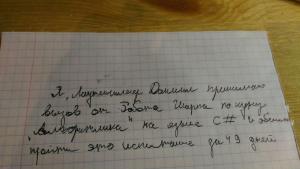 Я, Даниил принимаю
вызов от Робота Шарпа по курсу
"Алгоритмика" на языке C# и обещаю
пройти это испытание за 49 дней